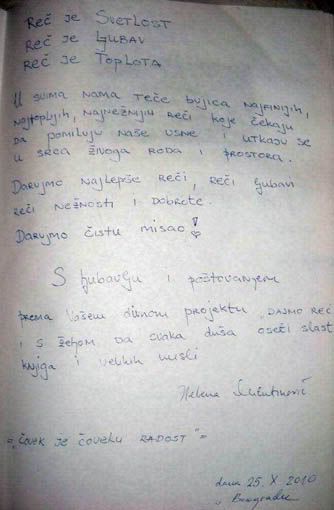 Reč je Svetlost
Reč je Ljubav
Reč je Toplota
U svima nama teče bujica najfinijih,
najtoplijih, najnežnijih reči koje čekaju
da pomiluju naše usne i utkaju se
u srca živoga roda i prostora.
Darujmo najlepše reči, reči ljubavi
reči nežnosti i dobrote.
Darujmo čistu misao!
S ljubavlju i poštovanjem
prema Vašem divnom projektu "DAJMO REČ
i s željom da svaka duša oseti slast
knjiga i velikih misli
Helena
="Čovek je čoveku RADOST"=
dana 25. X. 2010
u Beogradu